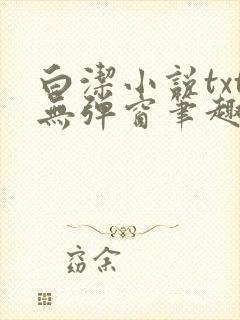 白潔小説txt
無彈窗筆趣
窈余